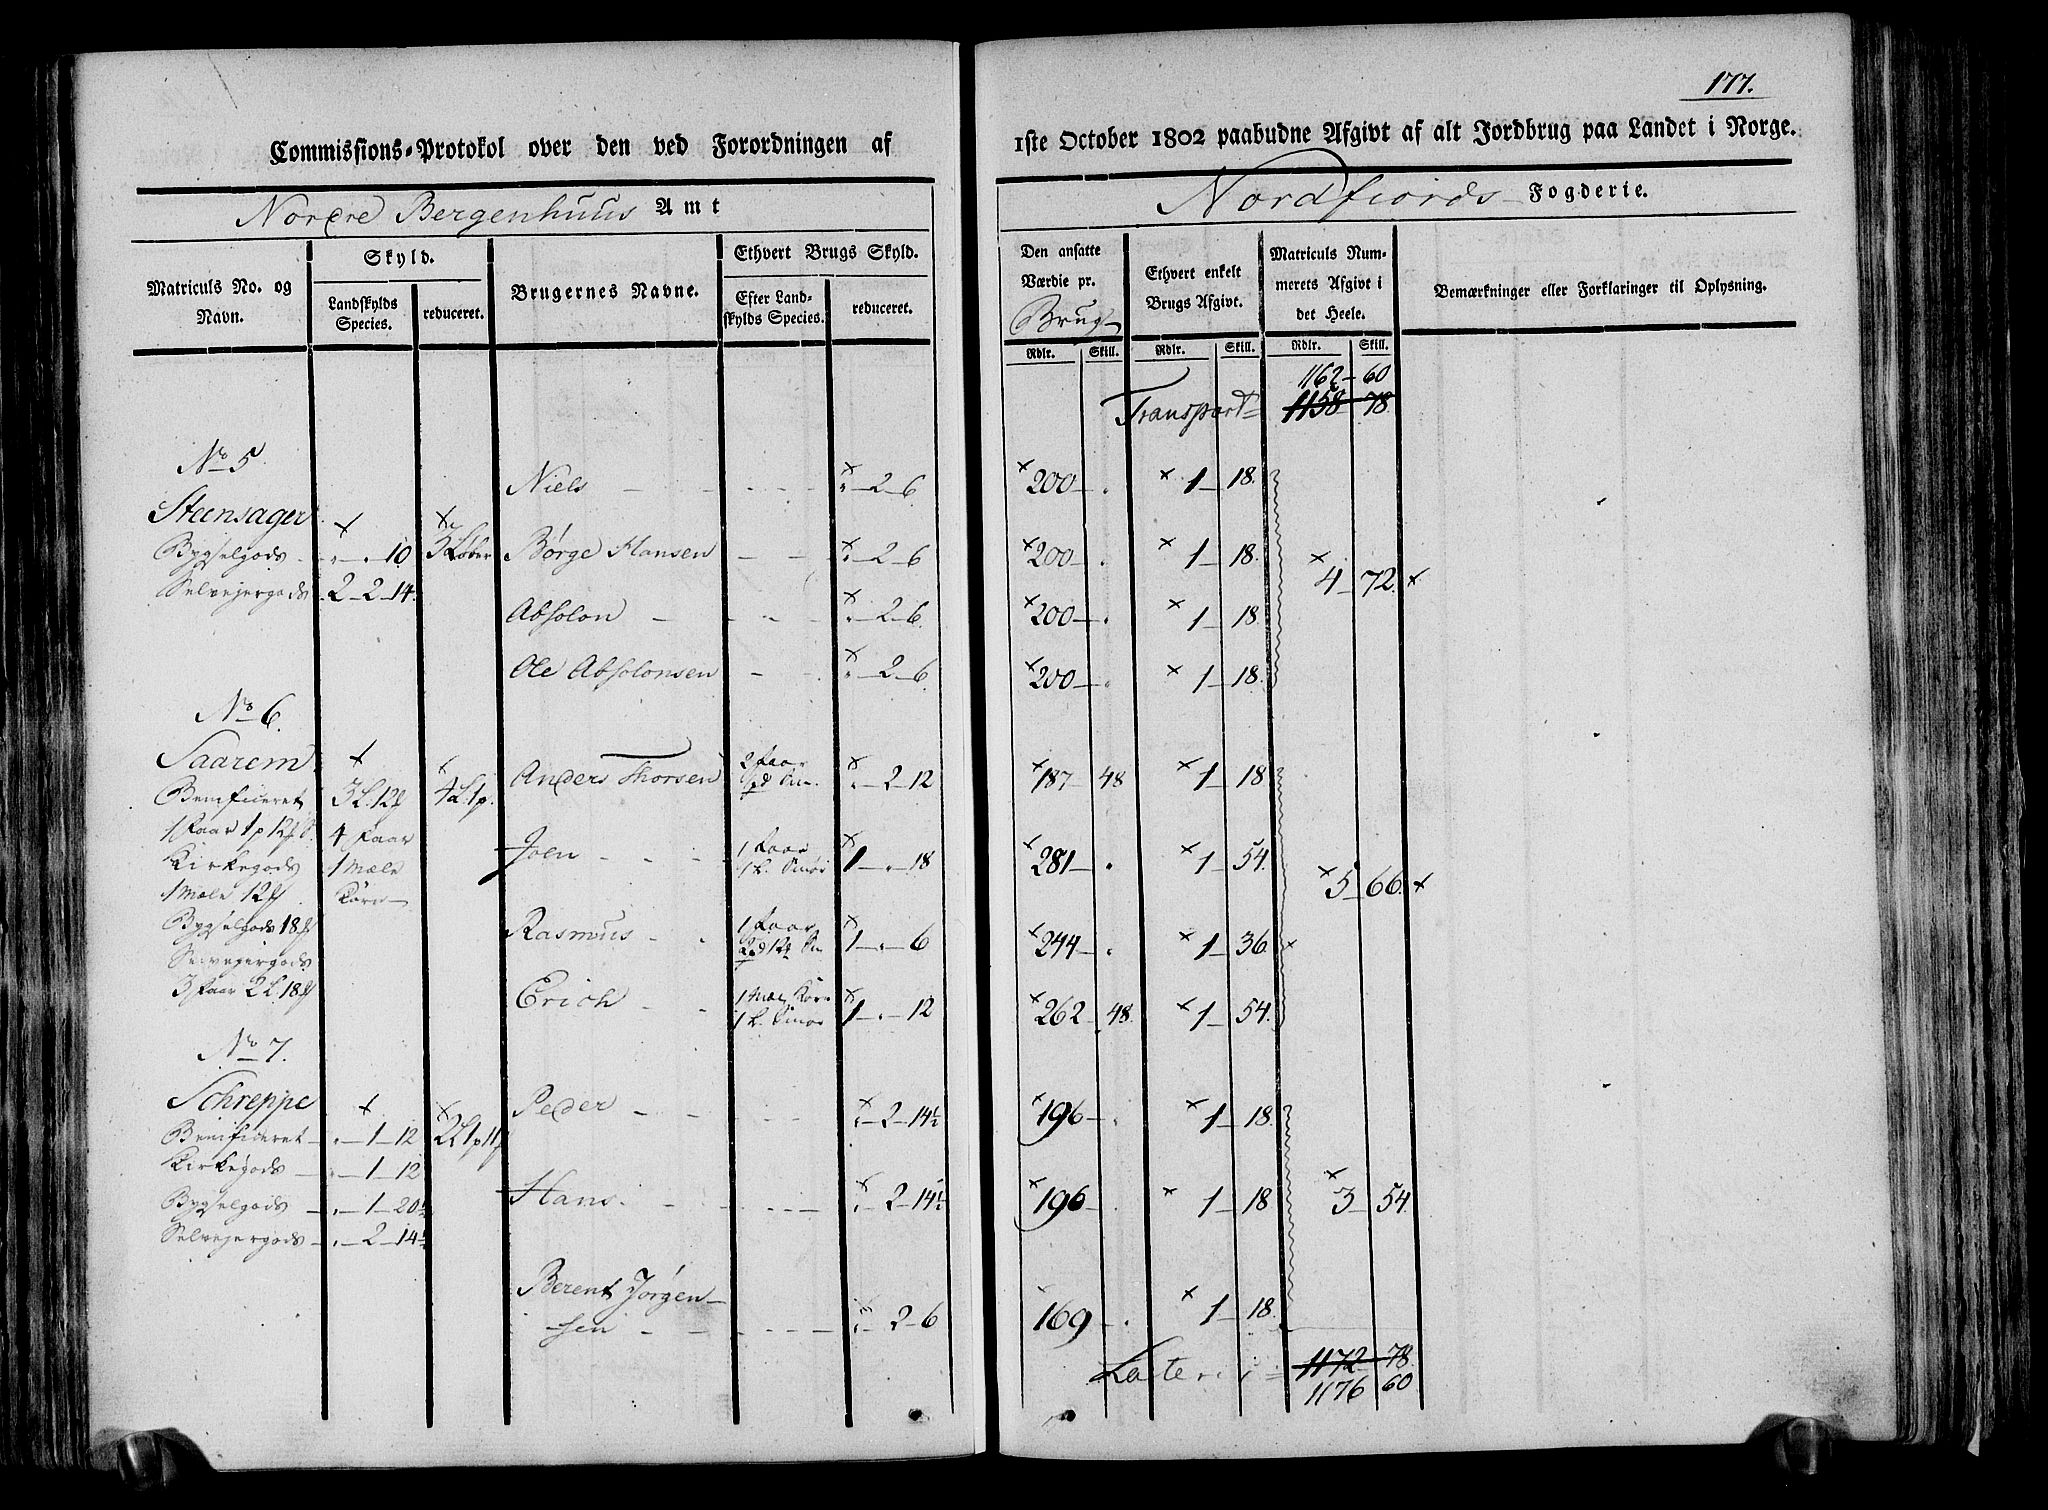 177.
Commissions-Protokol over den ved Forordningen af
1ste October 1802 paabudne Afgivt af alt Jordbrug paa Landet i Norge.
Nordre Bergenhuus Amt
Nordfiords Fogderie.
Matriculs No. og Navn.
Skyld.
Landskylds Species.
reduceret.
Brugernes Navne.
Ethvert Brugs Skyld.
Efter Landskylds Species.
reduceret.
Den ansatte Værdie pr. Brug
Ethvert enkelt Brugs Afgivt.
Matriculs Nummerets Afgivt i det Heele.
Bemærkninger eller Forklaringer til Oplysning.
Rdlr. Skill. Rdlr. Skill. Rdlr. Skill.
1162 - 60
Transport = 1158 - 78
No 5
Niels - 2 - 6 200 - 1 - 18.
Steensager
Bygselgods - 10 3 Løber Børge Hansen - 2 - 6 200 - 1 - 18.
4 - 72.
Selvejergods 2 - 2 - 14.
Absolon - 2 - 6. 200 - 1 - 18.
Ole Absolonsen - 2 - 6. 200 - 1 - 18.
No 6.
Saarem
Anders Thorsen 2 faar - 2 - 12 187 - 48 1 - 18
Beneficeret 3 L. 12 4 L. 1 p.
1 faar 1 p 12 4 faar
Joen 1 faar 1 L. Smør 1 - . - 18 281 - . 1 - 54.
Kirkegods 1 Mæle
5 - 66.
1 Mæle 12 Korn
Bygselgods 18
Rasmus 1 faar 1 - . - 6 244 - . 1 - 36.
Selvejergods
3 faar 2 L. 18
Erich 1 Mæl Korn 1 L. Smør 1 - . - 12 262 - 48. 1 - 54.
No 7.
Schreppe
Peder - 2 - 14½ 196 - 1 - 18.
Beneficeret - 1 - 12 2 L 1 p 11
Kirkegods - 1 - 12
Hans - 2 - 14½ 196 - 1 - 18
3 - 54.
Bygselgods - 1 - 20½
Selvejergods - 2 - 14½
Berent Jørgen-
sen - 2 - 6 169 - . 1 - 18.
Lateris = 1172 - 78.
1176 60